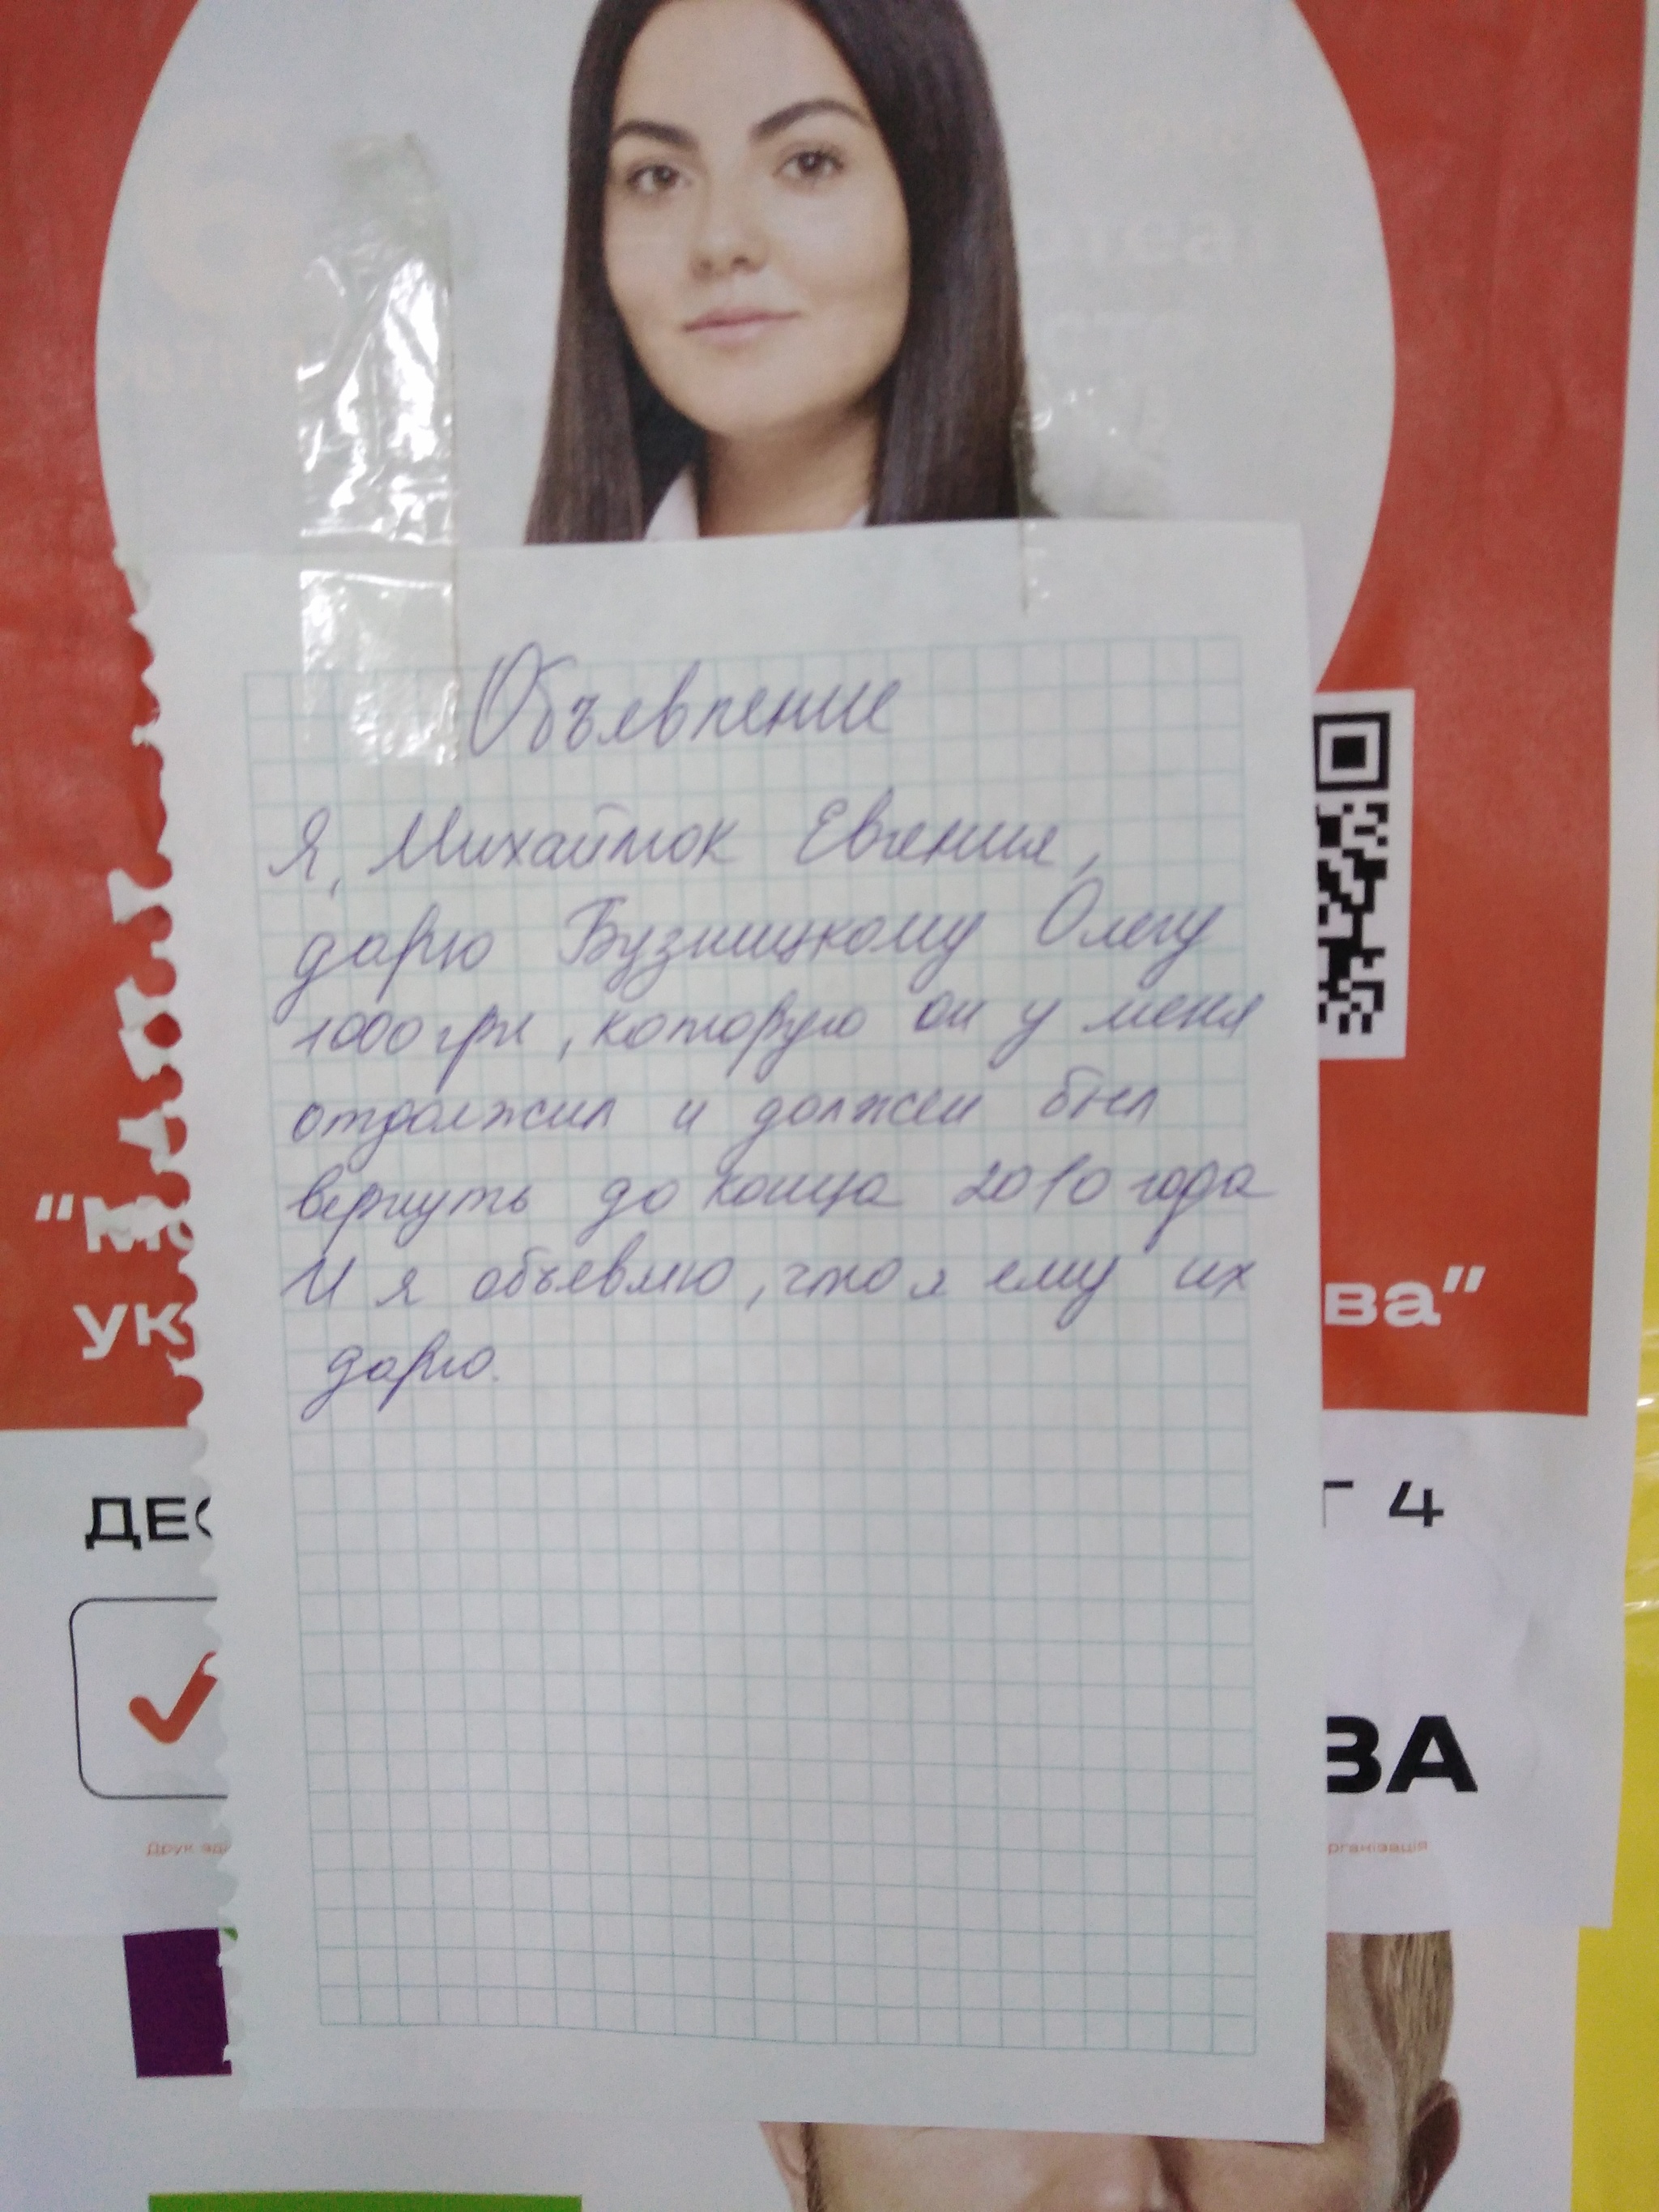 Объевление
Я, Михайлюк Евгения,
дарю Бузницкому Олегу
1000 грн, которую он у меня
отдолжил и должен был
вернуть до конца 2010 года
И я объевлю, что я ему их
дарю.
ва"
Г 4
ВА
Друк